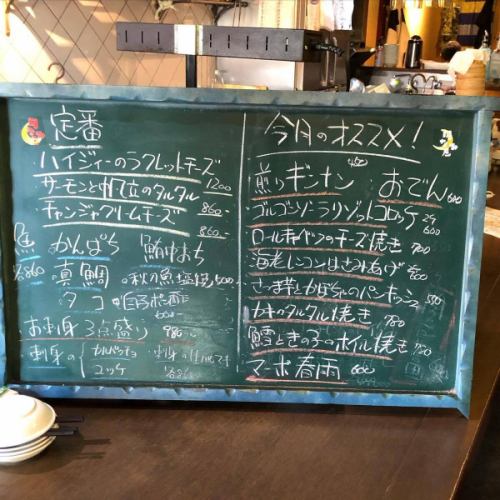 定番
ハイジィーのラクレットチーズ
サーモンと帆立のタルタル 1200
チャンジャクリームチーズ 860-
魚 各860
かんぱち
鮪中おち
真鯛
・秋の魚塩焼
タコ
600-
お刺身3点盛り 980-
・刺身の
カルパッチョ
ユッケ
今月のオススメ!
煎りギンナン
おでん 600
ゴルゴンゾーラリゾットコロッケ
ロールキャベツのチーズ焼き 700
海老レンコンはさみあげ
さつま芋とかぼちゃのパン
カキのタルタル焼き 780
鱈ときの子のホイル焼き 780
マーボ春雨 600